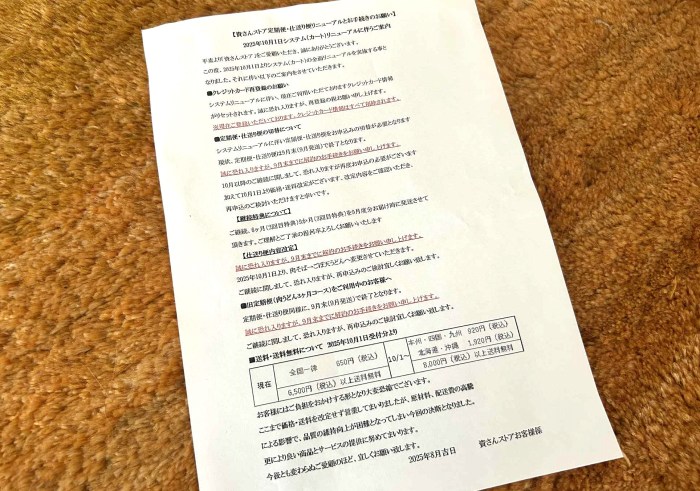 【資さんストア定期便・仕送り便リニューアルとお手続きのお願い】
2025年10月1日システム(カート)リニューアルに伴うご案内
平素より「資さんストア」をご愛顧いただき、誠にありがとうございます。
この度、2025年10月1日よりシステム(カート)の全面リニューアルを実施する事と
なりました。それに伴い以下のご案内をさせていただきます。
■クレジットカード再登録のお願い
システムリニューアルに伴い、現在ご利用いただいておりますクレジットカード情報
がリセットされます。誠に恐れ入りますが、再登録の程お願い申し上げます。
※現在ご登録いただいております、クレジットカード情報はすべて削除されます。
■定期便・仕送り便の切替について
システムリニューアルに伴い定期便・仕送り便をお申込みの切替が必要となります
現状、定期便・仕送り便は9月末(9月発送)で終了となります。
誠に恐れ入りますが、9月末までに解約のお手続きをお願い申し上げます。
10月以降のご継続に関しまして、恐れ入りますが再度お申込の必要がございます
加えて10月1日より価格・送料改定がございます。改定内容をご確認いただき、
再申込のご検討いただけますと幸いです。
【継続特典について】
ご継続、6ヶ月(2回目特典)5か月(3回目特典)を9月度分お届け時に発送させて
頂きます。ご理解とご了承の程何卒よろしくお願いいたします
【仕送り便内容改定】
誠に恐れ入りますが、9月末までに解約のお手続きをお願い申し上げます。
2025年10月1日より、肉そば→ごぼ天うどんへ変更させていただきます。
ご継続に関しまして、恐れ入りますが、再申込みのご検討宜しくお願い致します。
■旧定期便(肉うどん3ヶ月コース)をご利用中のお客様へ
定期便・仕送り便同様に、9月末(9月発送)で終了となります。
誠に恐れ入りますが、9月末までに解約のお手続きをお願い申し上げます。
ご継続に関しまして、恐れ入りますが、再申込みのご検討宜しくお願い致します。
■送料・送料無料について 2025年10月1日受付分より
現在 全国一律 650円(税込) 10/1~ 本州・四国・九州 920円(税込)
北海道・沖縄 1,920円(税込)
6,500円(税込)以上送料無料 8,000円(税込)以上送料無料
お客様にはご負担をおかけする形となり大変恐縮でございます。
ここまで価格・送料を改定せず営業してまいりましたが、原材料、配送費の高騰
による影響で、品質の維持向上が困難となってしまい今回の決断となりました。
更により良い商品とサービスの提供に努めてまいります。
今後とも変わらぬご愛顧のほど、宜しくお願い致します。
2025年8月吉日 資さんストアお客様係